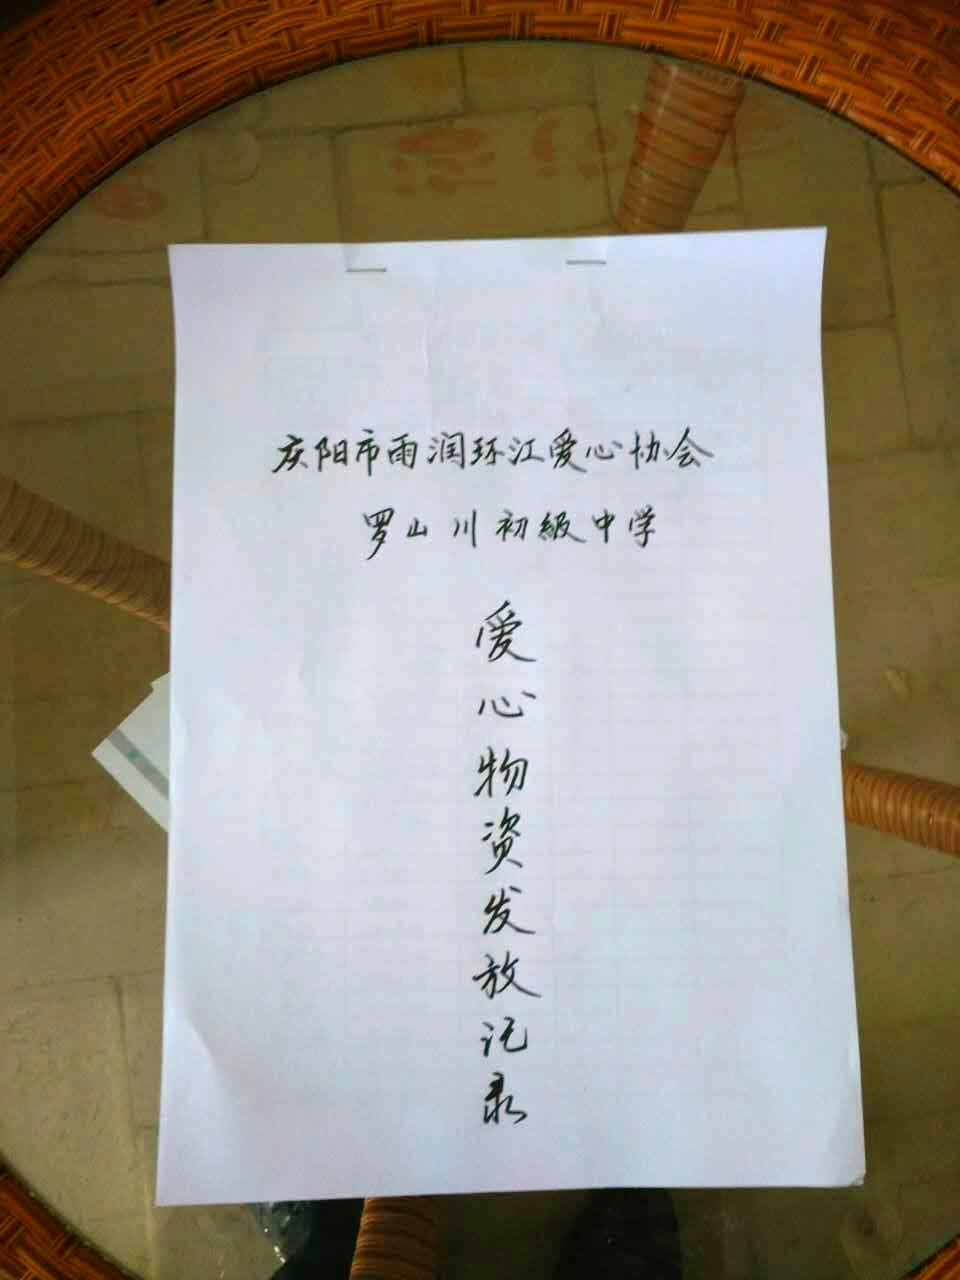 庆阳市雨润环江爱心协会
罗山川初級中学
爱心物资发放记录